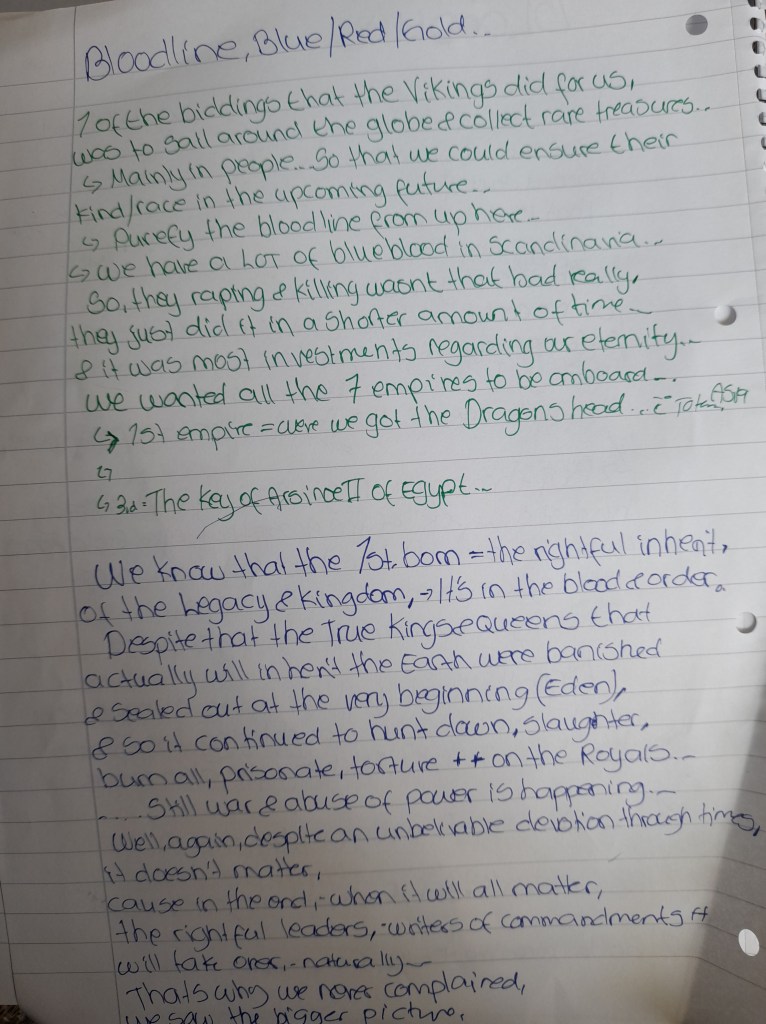 Bloodline, Blue/Red/Gold..
1 of the biddings that the Vikings did for us,
was to sail around the globe & collect rare treasures..
↳ Mainly in people... So that we could ensure their
kind/race in the upcoming future..
↳ Purefy the bloodline from up here..
↳ We have a LOT of blueblood in Scandinavia..
So, they raping & killing wasnt that bad really,
they just did it in a shorter amount of time..
& it was most investments regarding our eternity..
we wanted all the 7 empires to be onboard..
↳ 1st empire = were we got the Dragons head... ASIA
↳
↳ 3d = The key of Arsinoe II of Egypt..
We know that the 1st born = the rightful inherit,
of the Legacy & Kingdom, → It's in the blood & order.
Despite that the True Kings & Queens that
actually will inherit the Earth were banished
& sealed out at the very beginning (Eden),
& so it continued to hunt down, slaughter,
burn all, prisonate, torture ++ on the Royals..
..... Still war & abuse of power is happening..
Well, again, despite an unbelivable devotion through times,
it doesn't matter,
cause in the end, - when it will all matter,
the rightful leaders, - writers of commandments ++
will take over, - naturally..
Thats why we never complained,
we saw the bigger picture,